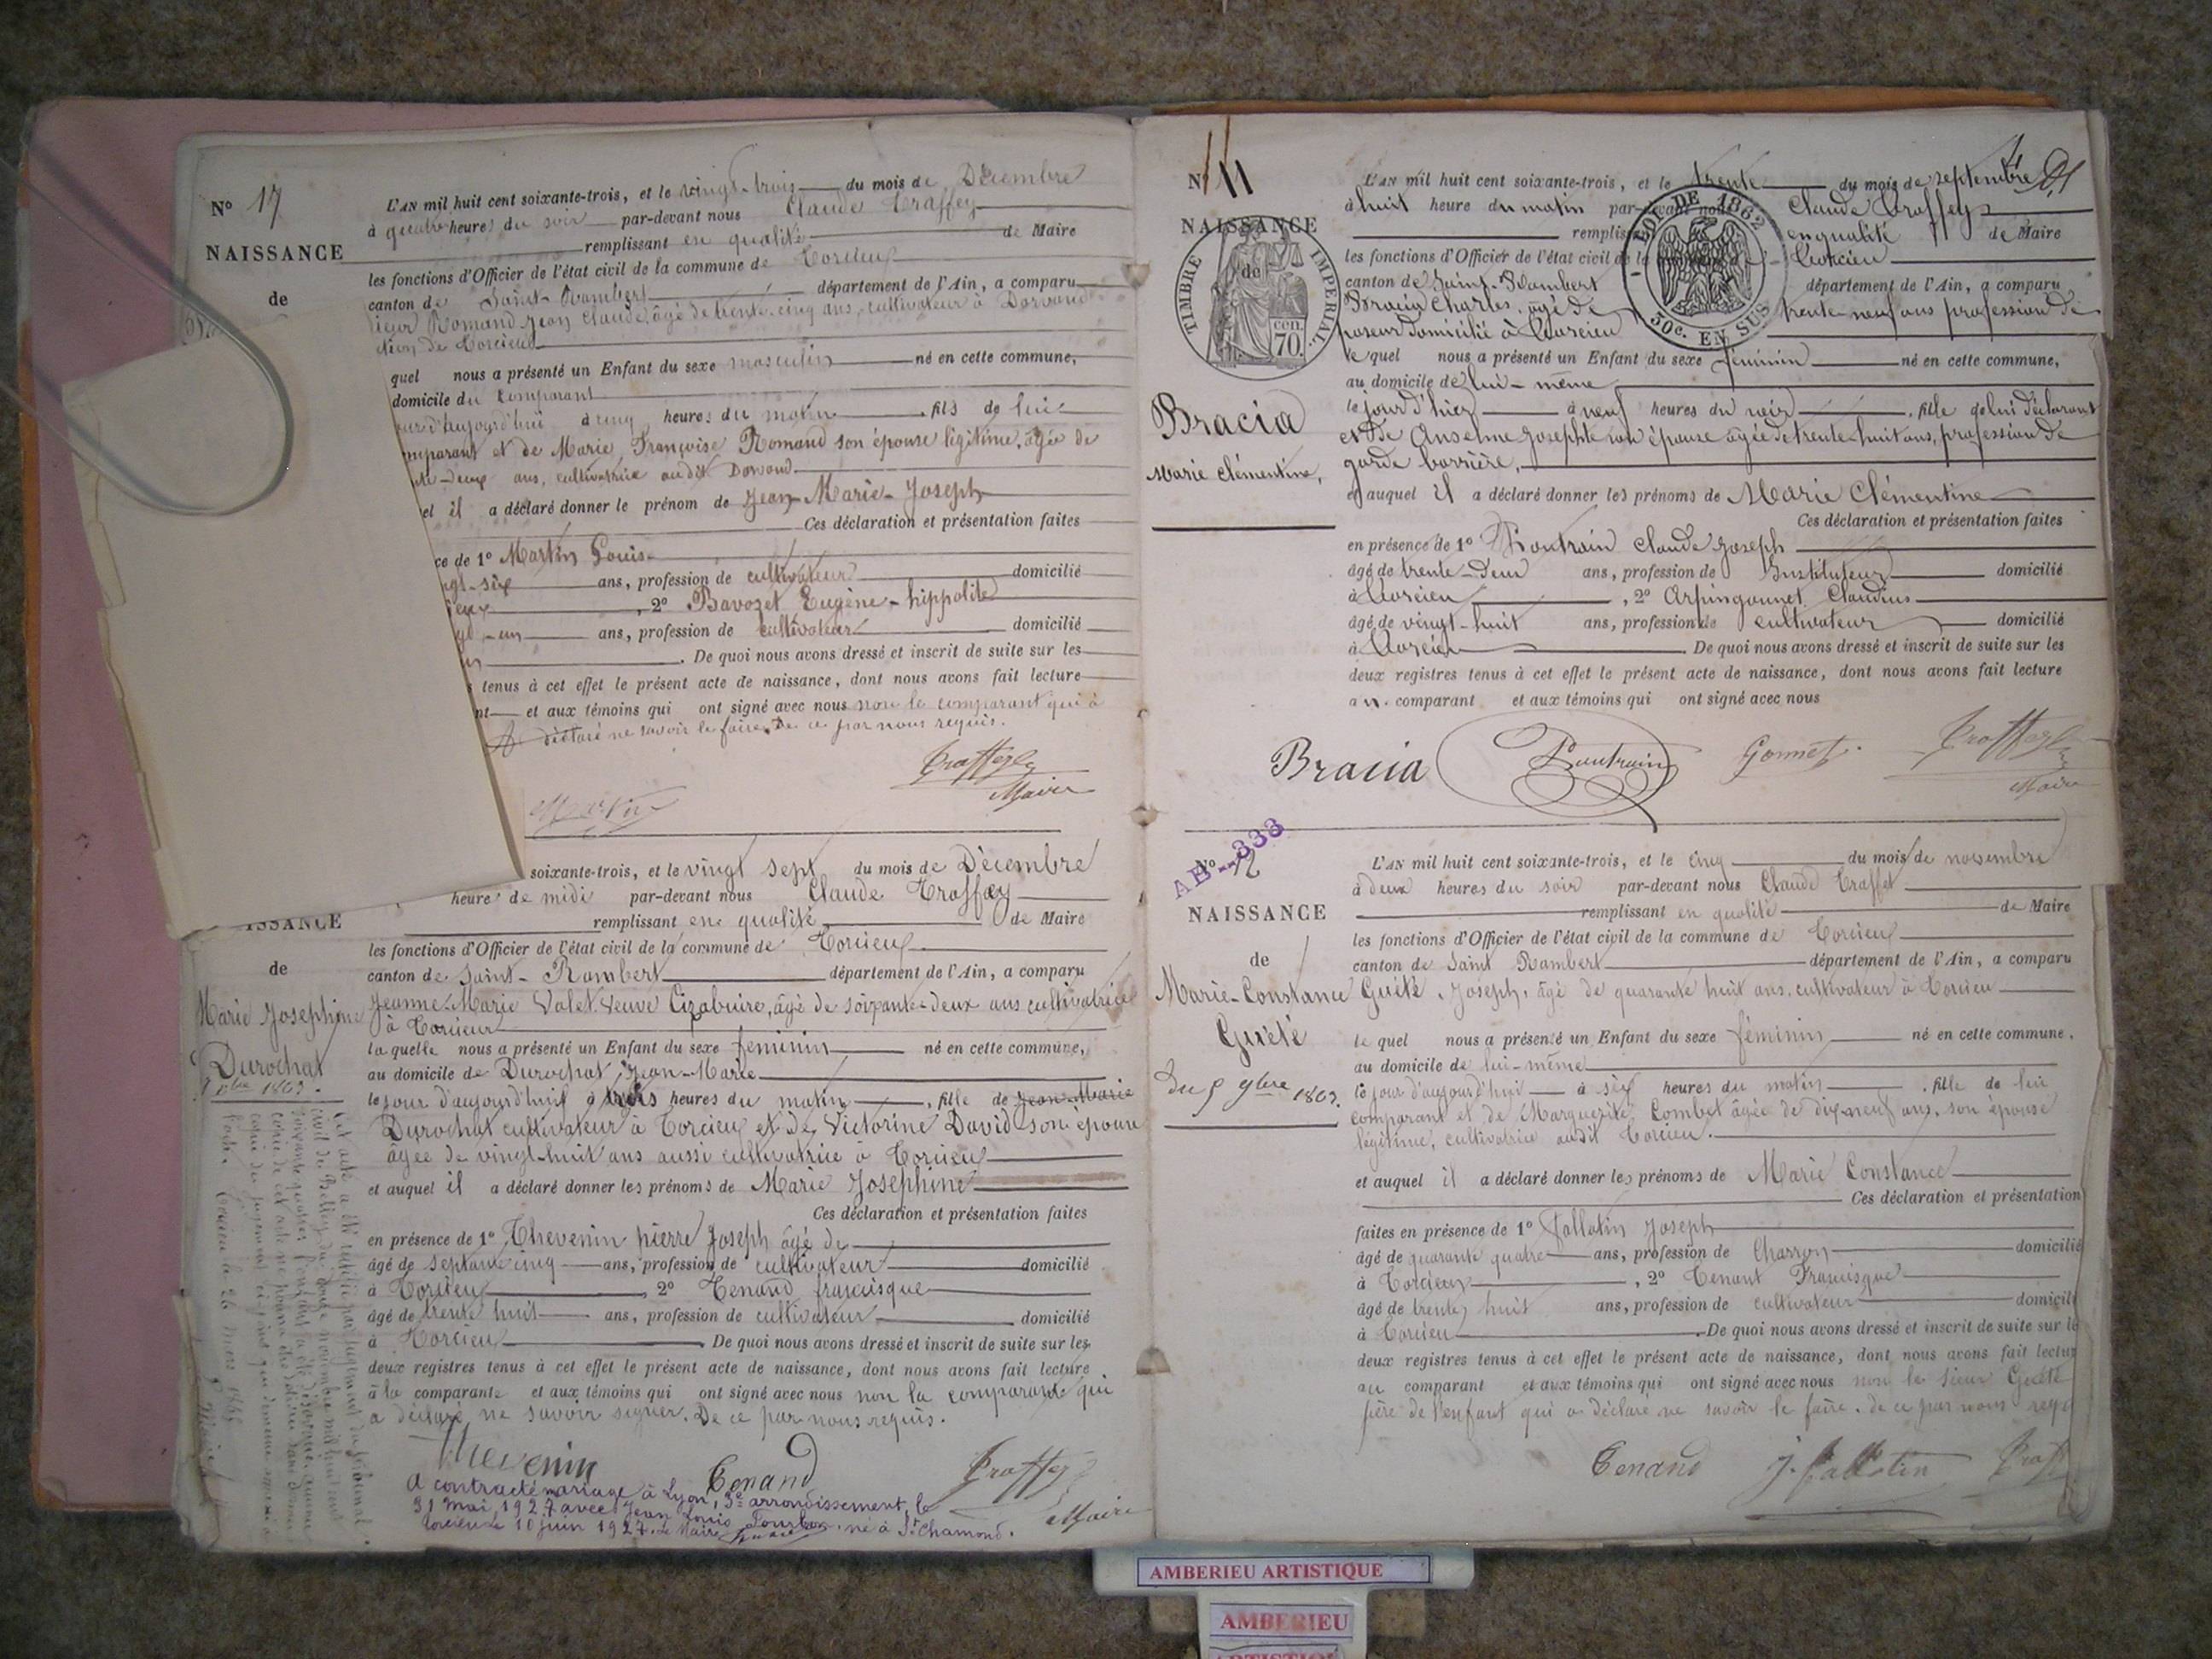 N° 17
NAISSANCE
de
L'AN mil huit cent soixante-trois, et le vingt-trois du mois de Décembre
à quatre heures du soir par-devant nous Claude Traffey
remplissant en qualité de Maire
les fonctions d'Officier de l'état civil de la commune de Torcieu
canton de Saint-Rambert département de l'Ain, a comparu
Romand Jean Claude, âgé de trente-cinq ans, cultivateur à Dorvand
de Torcieu
quel nous a présenté un Enfant du sexe masculin né en cette commune,
domicile du comparant
d'aujourd'hui à cinq heures du matin, fils de lui
comparant et de Marie Françoise Romand son épouse légitime, âgée de
deux ans, cultivatrice audit Dorvand
et il a déclaré donner le prénom de Jean-Marie-Joseph
Ces déclaration et présentation faites
ce de 1° Martin Louis
six ans, profession de cultivateur domicilié
, 2° Bavozet Eugène-hippolite
un ans, profession de cultivateur domicilié
. De quoi nous avons dressé et inscrit de suite sur les
tenus à cet effet le présent acte de naissance, dont nous avons fait lecture
nt et aux témoins qui ont signé avec nous non le comparant qui a
déclaré ne savoir le faire. De ce par nous requis.
Traffey
Maire
Martin
soixante-trois, et le vingt sept du mois de Décembre
heure de midi par-devant nous Claude Traffey
remplissant en qualité de Maire
ISSANCE
les fonctions d'Officier de l'état civil de la commune de Torcieu
de
canton de Saint-Rambert département de l'Ain, a comparu
Marie Josephine
Durochat
Jeanne-Marie Valet Veuve Cizabuire, âgé de soixante-deux ans cultivatrice
à Torcieu
laquelle nous a présenté un Enfant du sexe féminin né en cette commune,
au domicile de Durochat Jean-Marie
le jour d'aujourd'hui à trois heures du matin, fille de Jean-Marie
Durochat cultivateur à Torcieu et de Victorine David son épouse
âgée de vingt-huit ans aussi cultivatrice à Torcieu
et auquel il a déclaré donner les prénoms de Marie Josephine
Ces déclaration et présentation faites
en présence de 1° Thevenin pierre Joseph âgé de
âgé de septante cinq ans, profession de cultivateur domicilié
à Torcieu, 2° Tenand francisque
âgé de trente huit ans, profession de cultivateur domicilié
à Torcieu. De quoi nous avons dressé et inscrit de suite sur les
deux registres tenus à cet effet le présent acte de naissance, dont nous avons fait lecture
à la comparante et aux témoins qui ont signé avec nous non la comparante qui
a déclaré ne savoir signer. De ce par nous requis.
Thevenin
Tenand
Traffey
Maire
A contracté mariage à Lyon, 3e arrondissement, le
31 mai 1927 avec Jean Louis né à St Chamond.
Torcieu le 10 juin 1927. Le Maire
N° 11
NAISSANCE
de
TIMBRE IMPERIAL
70 cen.
LOI DE 1862
50c. EN SUS
Bracia
Marie Clémentine,
L'AN mil huit cent soixante-trois, et le trente du mois de septembre
à huit heure du matin par-devant nous Claude Traffey
remplissant en qualité de Maire
les fonctions d'Officier de l'état civil de la commune de Torcieu
canton de Saint-Rambert département de l'Ain, a comparu
Bracia Charles, âgé de trente-neuf ans profession de
poseur domicilié à Torcieu
le quel nous a présenté un Enfant du sexe féminin né en cette commune,
au domicile de lui-même
le jour d'hier à neuf heures du soir, fille de lui déclarant
et de Anselme Josephte son épouse âgée de trente-huit ans, profession de
garde barrière,
et auquel il a déclaré donner les prénoms de Marie Clémentine
Ces déclaration et présentation faites
en présence de 1° Poutrain Claude Joseph
âgé de trente-deux ans, profession de Instituteur domicilié
à Torcieu, 2° Arpingonnet Claudius
âgé de vingt-huit ans, profession de cultivateur domicilié
à Torcieu. De quoi nous avons dressé et inscrit de suite sur les
deux registres tenus à cet effet le présent acte de naissance, dont nous avons fait lecture
au comparant et aux témoins qui ont signé avec nous
Bracia
Poutrain
Gonnet
Traffey
Maire
AB--333
N° 12
NAISSANCE
de
Marie-Constance
Guété
Du 5 9bre 1863.
L'AN mil huit cent soixante-trois, et le cinq du mois de novembre
à deux heures du soir par-devant nous Claude Traffet
remplissant en qualité de Maire
les fonctions d'Officier de l'état civil de la commune de Torcieu
canton de Saint Rambert département de l'Ain, a comparu
Guété, Joseph, âgé de quarante huit ans, cultivateur à Torcieu
le quel nous a présenté un Enfant du sexe féminin né en cette commune.
au domicile de lui-même
le jour d'aujourd'hui à six heures du matin, fille de lui
comparant et de Marguerite Combet âgée de dix-neuf ans, son épouse
légitime, cultivatrice audit Torcieu.
et auquel il a déclaré donner les prénoms de Marie Constance
Ces déclaration et présentation
faites en présence de 1° Fallatin Joseph
âgé de quarante quatre ans, profession de Charron domicilié
à Torcieu, 2° Tenant Francisque
âgé de trente huit ans, profession de cultivateur domicili
à Torcieu. De quoi nous avons dressé et inscrit de suite sur le
deux registres tenus à cet effet le présent acte de naissance, dont nous avons fait lectur
au comparant et aux témoins qui ont signé avec nous non le sieur Guété
père de l'enfant qui a déclaré ne savoir le faire. de ce par nous req
Tenand
J. Fallatin
Traf
AMBERIEU ARTISTIQUE
AMBERIEU
ARTISTIQUE